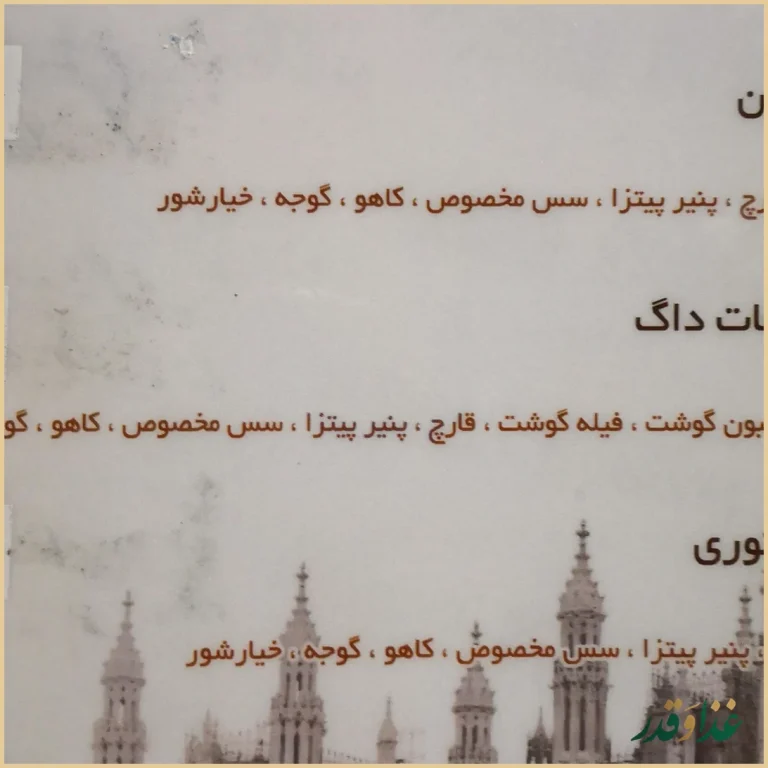 پنیر پیتزا ، سس مخصوص ، کاهو ، گوجه ، خیارشور
داگ
گوشت ، فیله گوشت ، قارچ ، پنیر پیتزا ، سس مخصوص ، کاهو ،
پنیر پیتزا ، سس مخصوص ، کاهو ، گوجه ، خیارشور
غذا و قدر